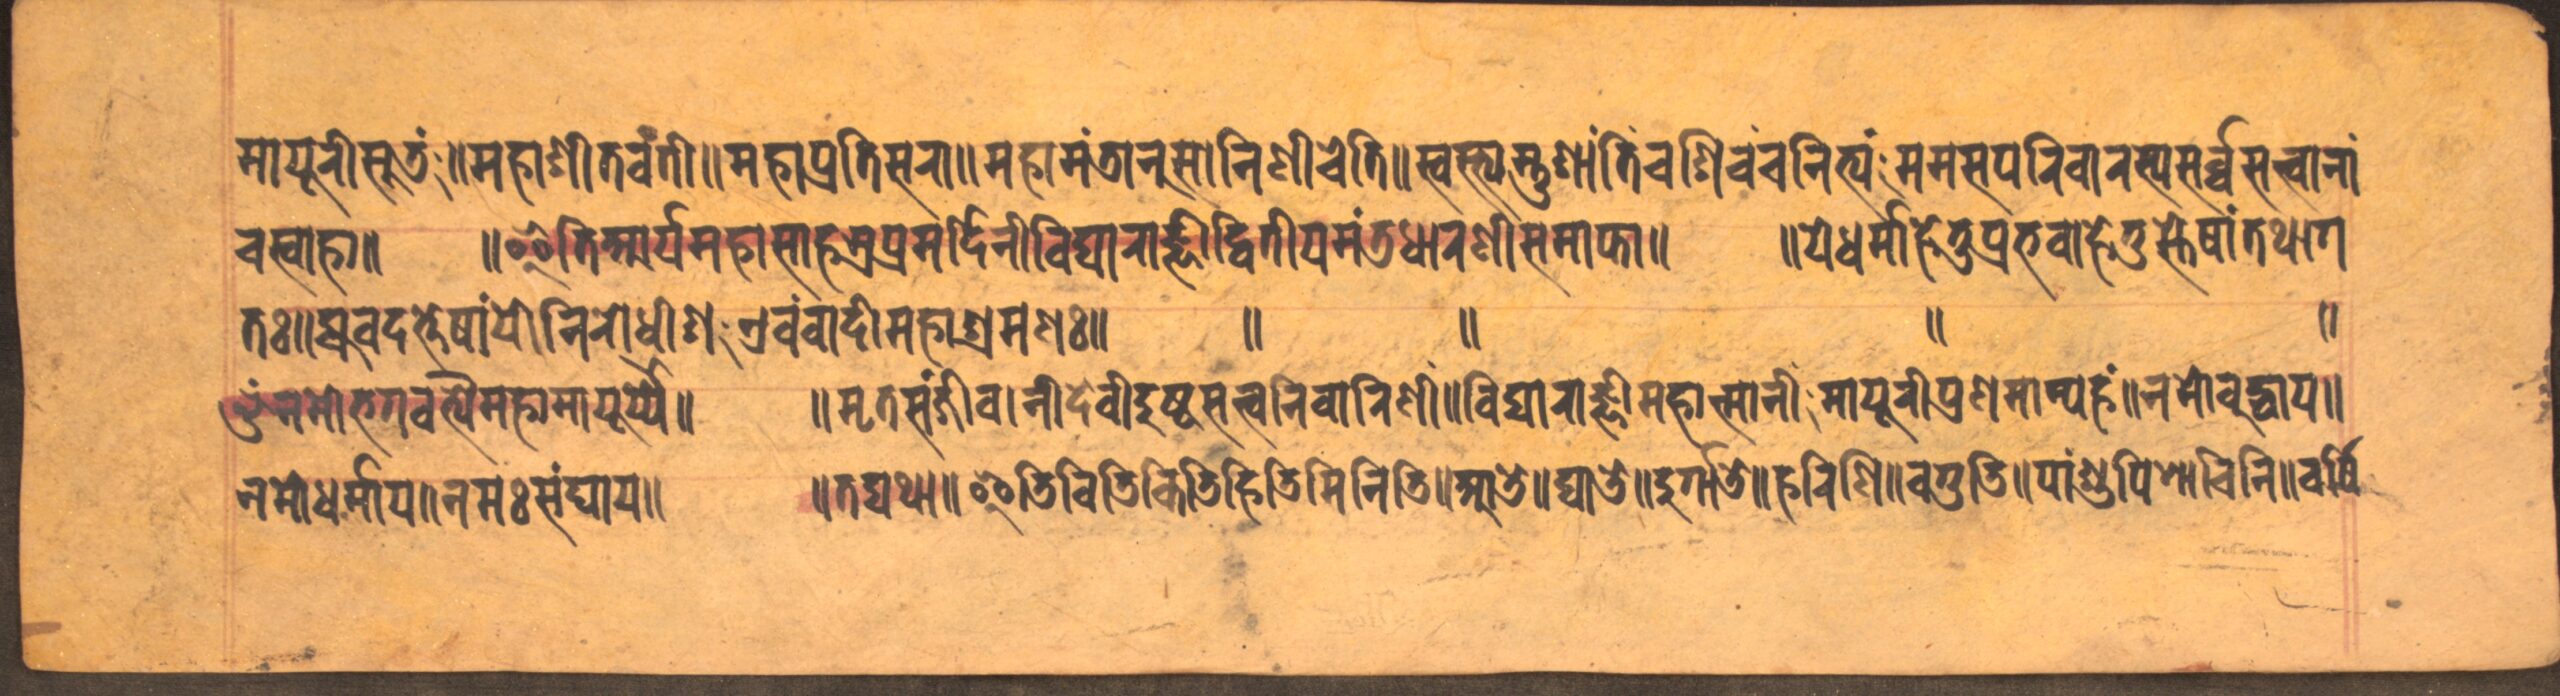 मायूरीसूत्रं॥महाशीतवंती॥महाप्रतिसरा॥महामंत्रानुसानिणीचेति॥स्वस्त्यस्तुशांतिंचशिवंचनित्यंममसपरिवारस्यसर्व्वसत्त्वानां
चस्वाहा॥ ॥इतिआर्यमहासाहस्रप्रमर्दिनीविद्याराज्ञीद्वितीयमंत्रधारणीसमाप्ता॥ ॥येधर्माहेतुप्रभवाहेतुस्तेषांतथाग
तः॥ह्यवदत्तेषांयोनिरोधीश एवंवादीमहाश्रमणः॥ ॥ ॥ ॥ ॥
ॐनमोभगवत्यैमहामायूर्य्यै॥ ॥मृतसंजीवनीदेवीदुष्टसत्त्वनिवारिणीं॥विद्याराज्ञीमहात्मानीमायूरीप्रणमाम्यहं॥नमोबुद्धाय॥
नमोधर्माय॥नमःसंघाय॥ ॥तद्यथा॥इतिवितिकितिहितिमिनिति॥आते॥द्याते॥दुर्गाते॥हरिणि॥वगुति॥पांशुपिशाचिनि॥वर्षि